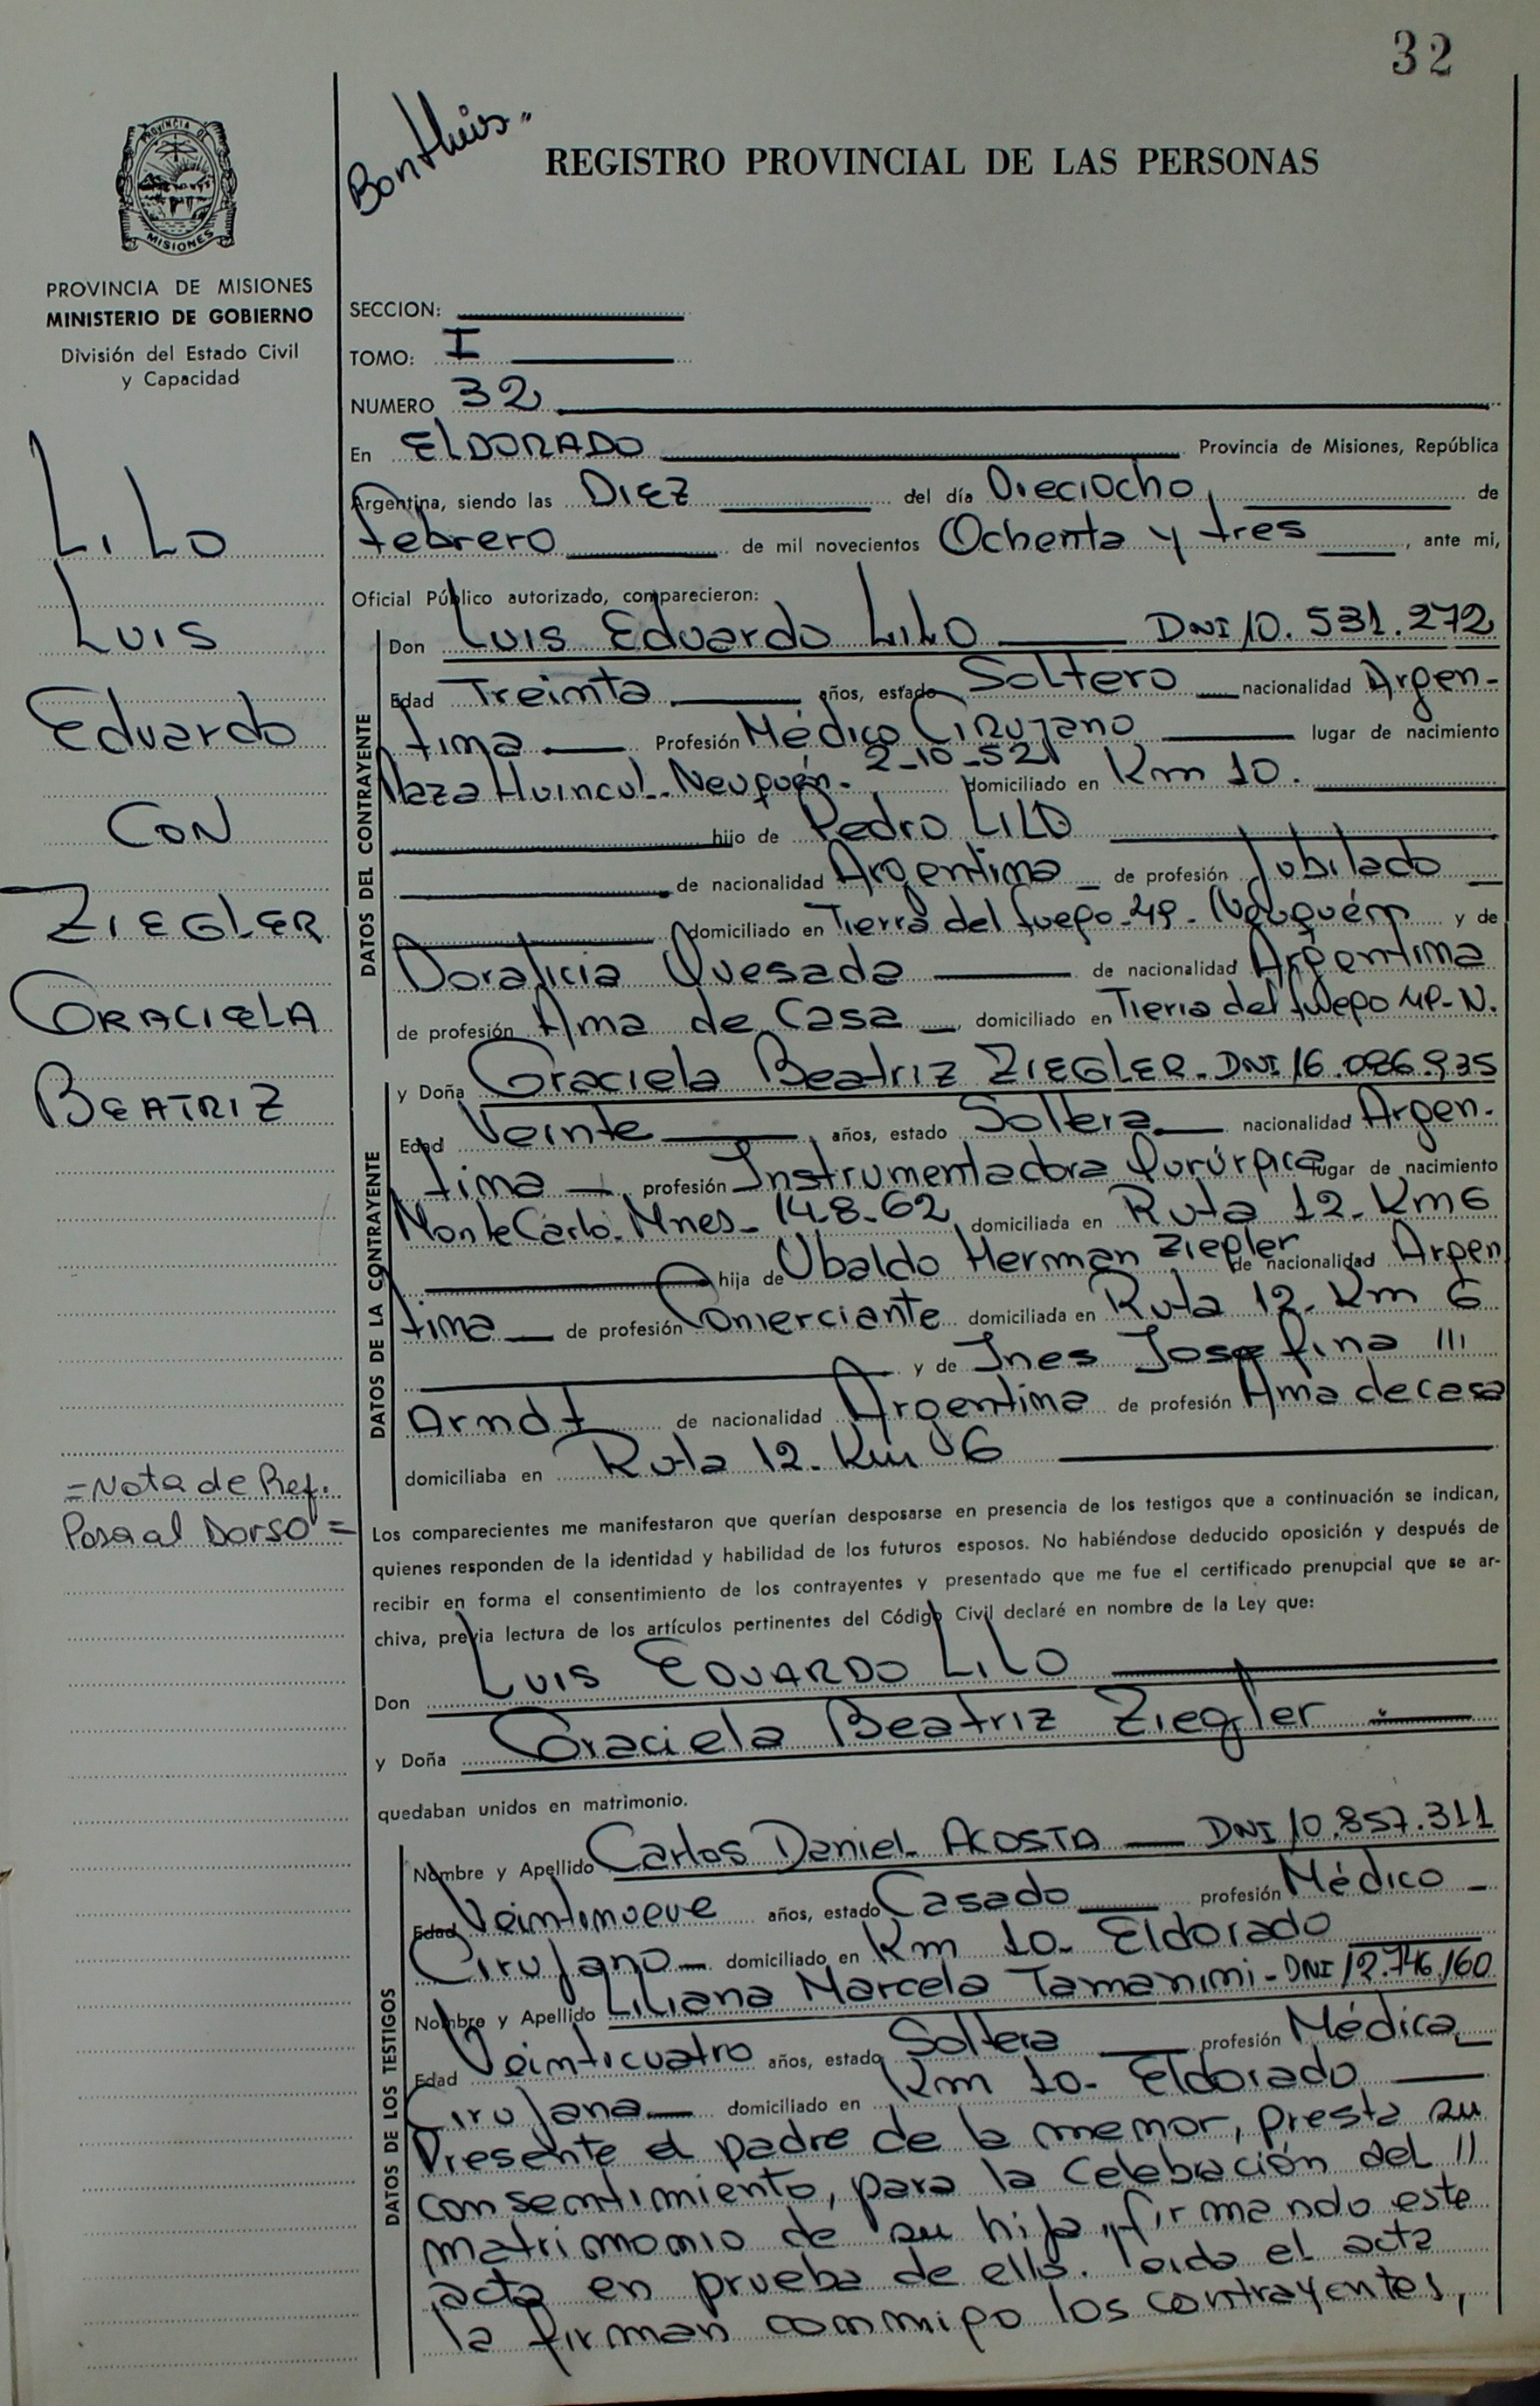 32
Bonthuis.
REGISTRO PROVINCIAL DE LAS PERSONAS
PROVINCIA DE
MISIONES
PROVINCIA DE MISIONES
MINISTERIO DE GOBIERNO
División del Estado Civil
y Capacidad
LiLo
Luis
Eduardo
CON
ZIEGLER
GRACIELA
BEATRIZ
=Nota de Ref.
Pasa al Dorso=
SECCION:
TOMO: I
NUMERO 32
En ElDORADO Provincia de Misiones, República
Argentina, siendo las DIEZ del día Dieciocho de
febrero de mil novecientos Ochenta y tres, ante mi,
Oficial Público autorizado, comparecieron:
DATOS DEL CONTRAYENTE
Don Luis Eduardo LiLO DNI 10.531.272
Edad Treinta años, estado Soltero nacionalidad Argen-
tina Profesión Médico Cirujano lugar de nacimiento
Plaza Huincul-Neuquén- 2-10-52 domiciliado en Km 10.
hijo de Pedro LILO
de nacionalidad Argentina de profesión Jubilado
domiciliado en Tierra del fuego-49-Neuquén y de
Doralicia Quesada de nacionalidad Argentina
de profesión Ama de Casa, domiciliado en Tierra del fuego 49-N.
DATOS DE LA CONTRAYENTE
y Doña Graciela Beatriz ZIEGLER-DNI 16.086.935
Edad Veinte, años, estado Soltera nacionalidad Argen-
tina profesión Instrumentadora Qurúrgica lugar de nacimiento
MonteCarlo-Mnes-14-8-62 domiciliada en Ruta 12-Km6
hija de Ubaldo Herman Ziegler de nacionalidad Argen
tina de profesión Comerciante domiciliada en Ruta 12-Km 6
y de Ines Josefina III
Arndt de nacionalidad Argentina de profesión Ama de casa
domiciliaba en Ruta 12-Km 6
Los comparecientes me manifestaron que querían desposarse en presencia de los testigos que a continuación se indican,
quienes responden de la identidad y habilidad de los futuros esposos. No habiéndose deducido oposición y después de
recibir en forma el consentimiento de los contrayentes y presentado que me fue el certificado prenupcial que se ar-
chiva, previa lectura de los artículos pertinentes del Código Civil declaré en nombre de la Ley que:
Don LUIS EDUARDO LILO
y Doña Graciela Beatriz Ziegler
quedaban unidos en matrimonio.
DATOS DE LOS TESTIGOS
Nombre y Apellido Carlos Daniel ACOSTA DNI 10.857.311
Edad Veintinueve años, estado Casado profesión Médico
Cirujano domiciliado en Km 10-Eldorado
Nombre y Apellido Liliana Marcela Tamanini-DNI 12.746.160
Edad Veinticuatro años, estado Soltera profesión Médica
Cirujana domiciliado en Km 10-Eldorado
Presente el padre de la menor, presta su
consentimiento, para la Celebración del II
matrimonio de su hija, firmando este
acta en prueba de ello. Leída el acta
la firman conmigo los contrayentes,